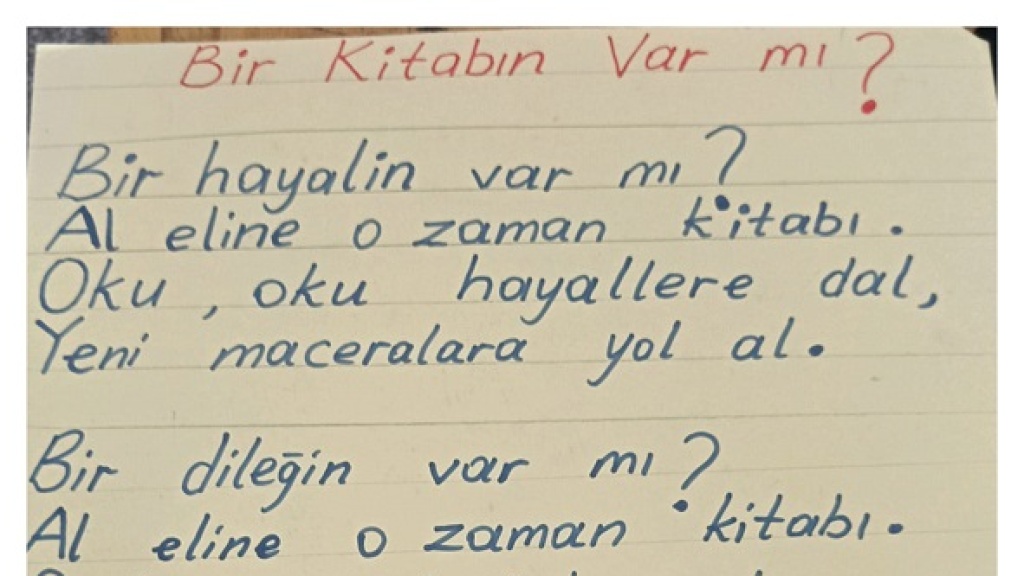 Bir Kitabın Var mı?
Bir hayalin var mı?
Al eline o zaman kitabı.
Oku, oku hayallere dal,
Yeni maceralara yol al.
Bir dileğin var mı?
Al eline o zaman kitabı.